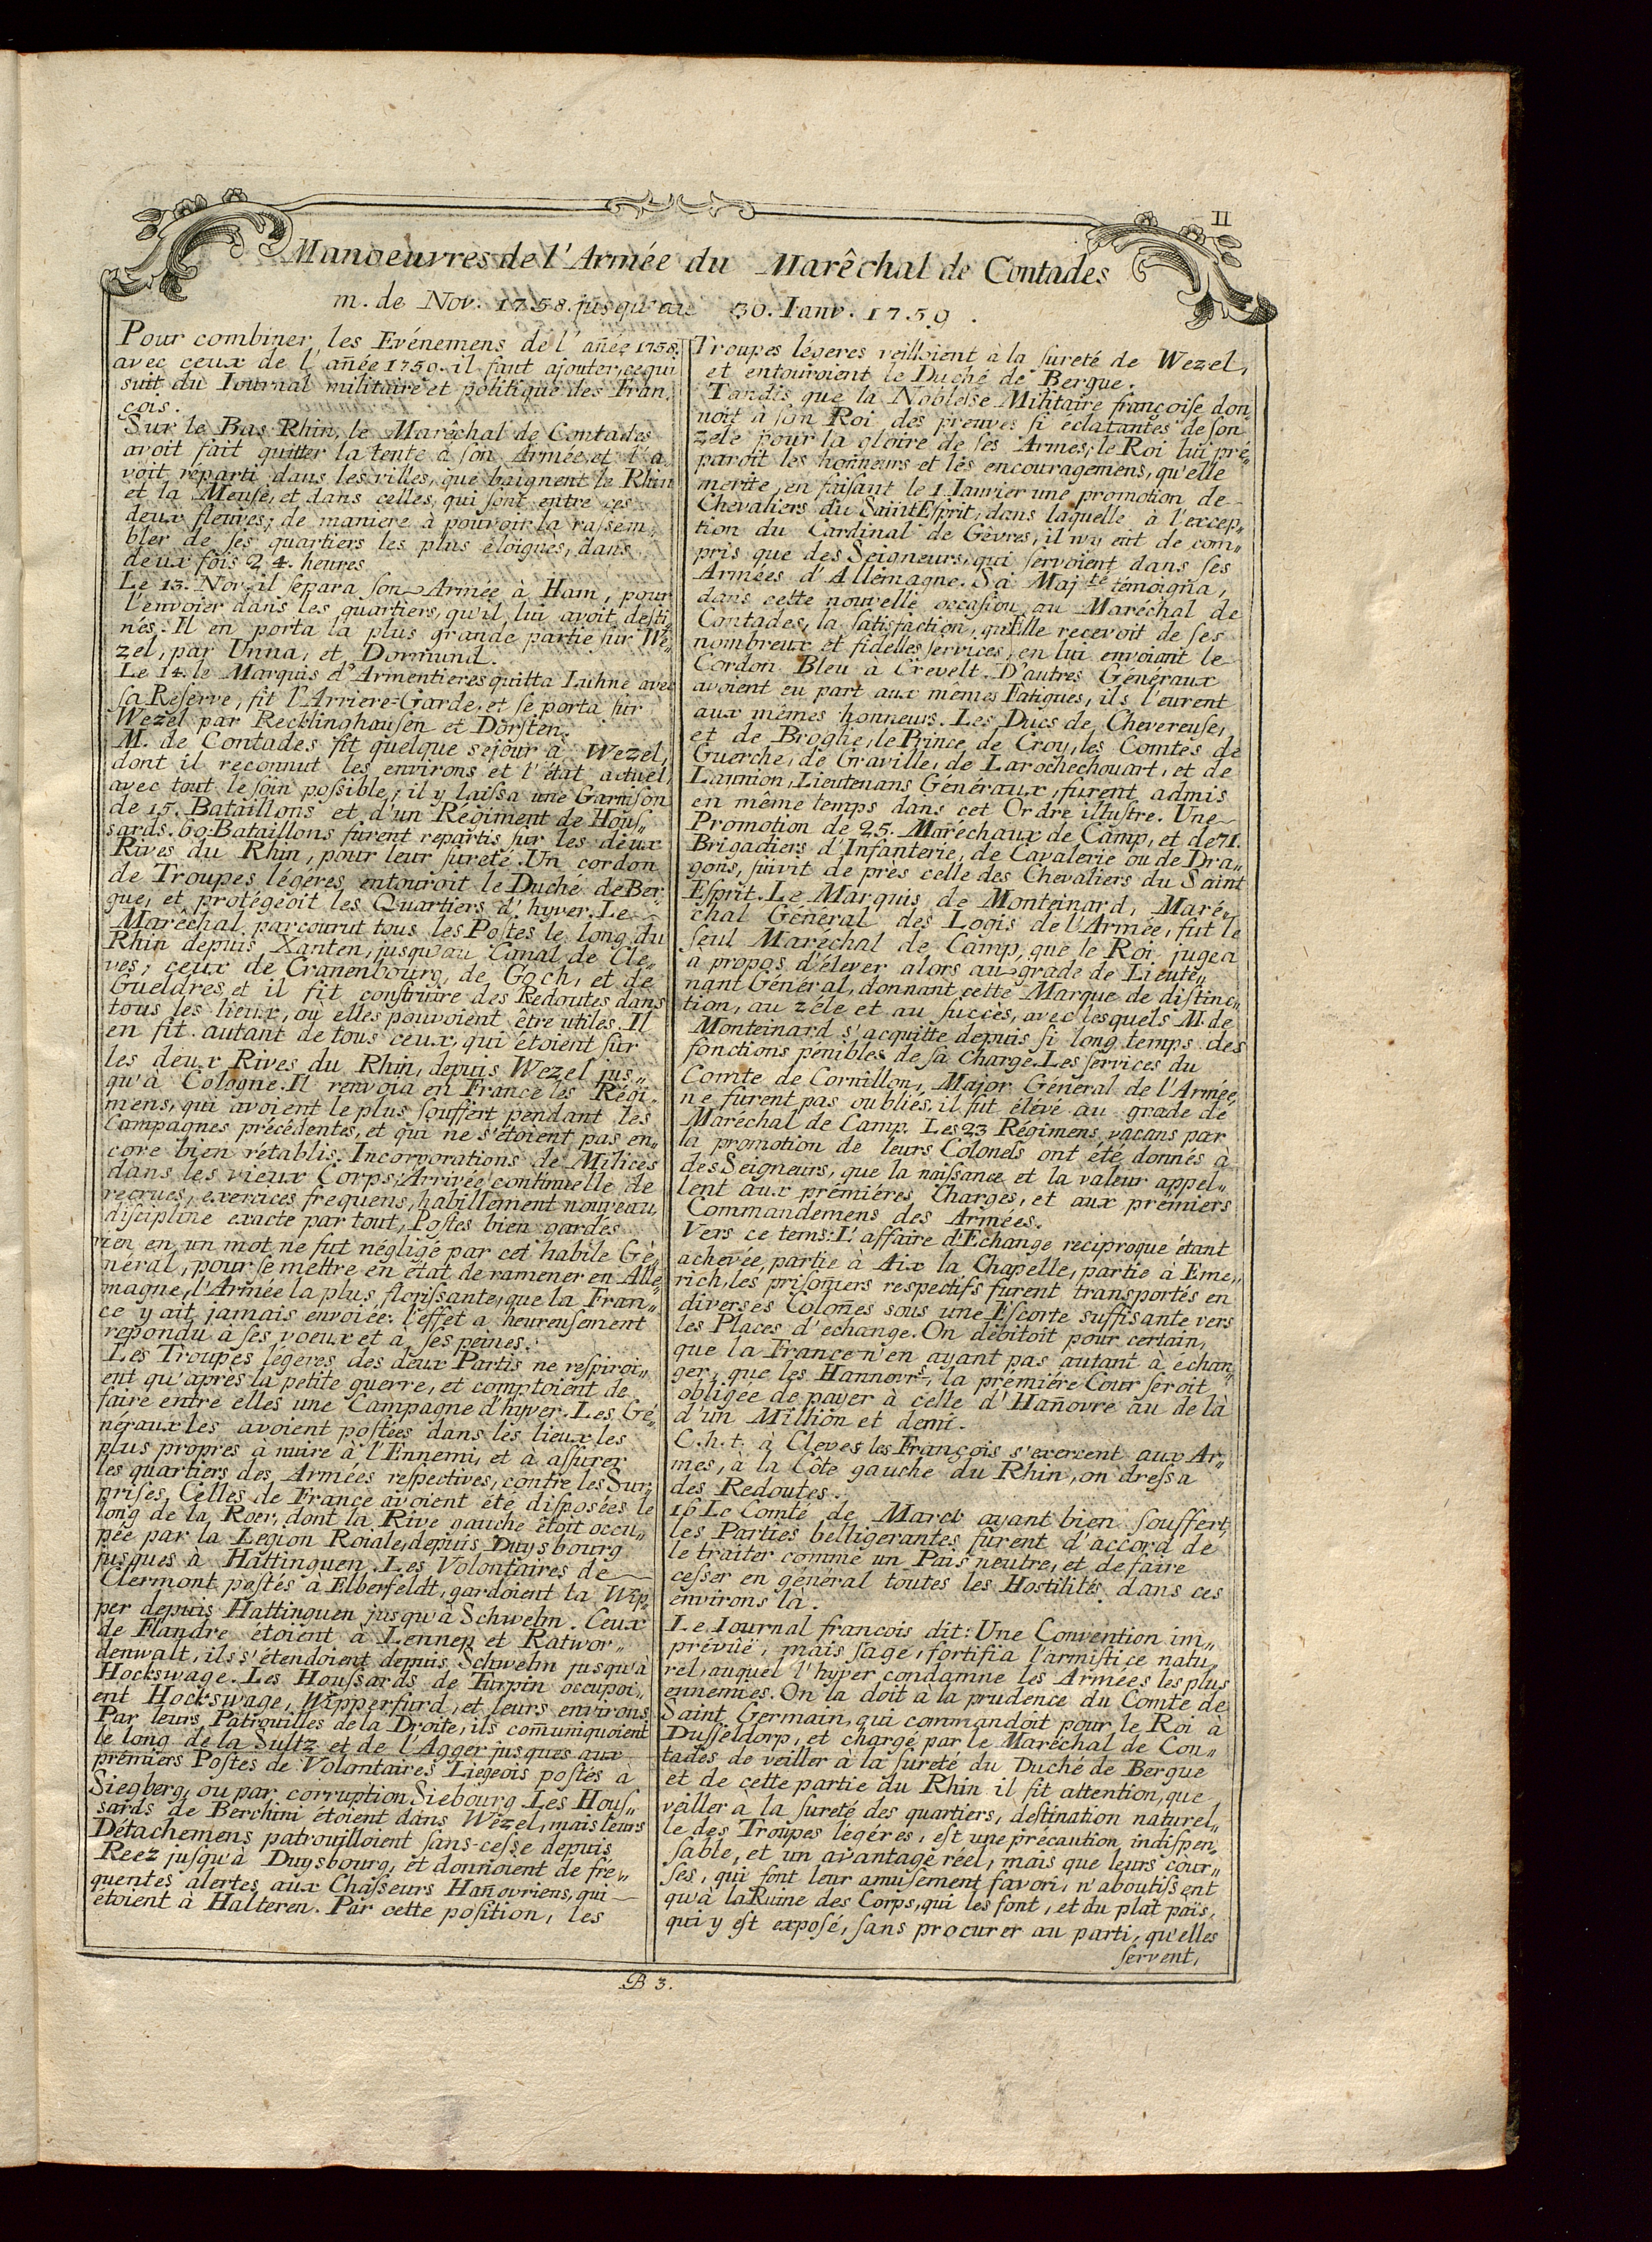 II
Manoeuvres de l'Armée du Marêchal de Contades
m. de Nov. 1758. jusqu'au 30. Ianv. 1759.
Pour combiner les Evénemens de l'añée 1758.
avec ceux de l'añée 1759. il faut ajouter, ce qui
suit du Iournal militaire et politique des Fran,
çois.
Sur le Bas Rhin, le Marêchal de Contades
avoit fait quitter la tente à ſon Armée, et l'a„
voit réparti dans les villes, que baignent le Rhin
et la Meuſe, et dans celles, qui ſont entre ces
deux fleuves; de maniere à pouvoir la raſſem„
bler de ſes quartiers les plus éloignés, dans
deux fois 24. heures.
Le 13. Nov. il ſepara ſon Armée à Ham, pour
l'envoier dans les quartiers, qu'il lui avoit deſti„
nés. Il en porta la plus grande partie ſur We„
zel, par Unna, et Dormund.
Le 14. le Marquis d'Armentieres quitta Luhne avec
ſa Réſerve, fit l'Arriere-Garde, et ſe porta ſur
Wezel par Recklinghauſen et Dorſten.
M. de Contades fit quelque sejour à Wezel,
dont il reconnut les environs et l'état actuel
avec tout le ſoin poſſible; il y laiſſa une Garniſon
de 15. Bataillons et d'un Régiment de Houſ„
sards. 60 Bataillons fûrent repartis ſur les deux
Rives du Rhin, pour leur ſureté. Un cordon
de Troupes légéres entouroit le Duché de Ber„
gue, et protégeoit les Quartiers d'hyver. Le
Maréchal parcourut tous les Poſtes le long du
Rhin depuis Xanten, jusqu'au Canal de Cle„
ves; ceux de Cranenbourg, de Goch, et de
Gueldres, et il fit conſtruire des Redoutes dans
tous les lieux, ou elles pouvoient être utiles. Il
en fit autant de tous ceux, qui étoient ſur
les deux Rives du Rhin, depuis Wezel jus„
qu'à Cologne. Il renvoia en France les Régi„
mens, qui avoient le plus ſouffert pendant les
Campagnes précédentes, et qui ne s'étoient pas en„
core bien rétablis. Incorporations de Milices
dans les vieux Corps; Arrivée continuelle de
recrues, exercices frequens, habillement nouveau,
diſcipline exacte par tout, Poſtes bien gardés
rien en un mot ne fut négligé par cet habile Gé„
néral, pour ſe mettre en état de ramener en Alle„
magne, l'Armée la plus floriſſante, que la Fran„
ce y ait jamais envoiée: l'effet a heureuſement
repondu à ſes voeux et à ſes peines.
Les Troupes légeres des deux Partis ne reſpiroi„
ent qu'apres la petite guerre, et comptoient de
faire entre elles une Campagne d'hyver. Les Gé„
néraux les avoient poſtées dans les lieux les
plus propres à nuire à l'Ennemi, et à aſſurer
les quartiers des Armées reſpectives, contre les Sur„
priſes. Celles de France avoient été diſposées le
long de la Roer, dont la Rive gauche étoit occu„
pée par la Legion Roiale, depuis Duysbourg
juſques à Hattinguen. Les Volontaires de
Clermont poſtés à Elberfeldt, gardoient la Wip„
per depuis Hattinguen jusqu'à Schwelm. Ceux
de Flandre étoient à Lennep et Ratwor„
denwalt, ils s'étendoient depuis Schwelm jusqu'à
Hockswage. Les Houſſards de Turpin occupoi„
ent Hockswage, Wipperfurd, et leurs environs.
Par leurs Patrouilles de la Droite, ils com̃uniquoient
le long de la Sultz et de l'Agger jusques aux
premiers Poſtes de Volontaires Liégeois poſtés à
Siegberg, ou par corruption Siebourg. Les Houſ„
sards de Berchini étoient dans Wezel, mais leurs
Détachemens patrouilloient ſans-ceſſe depuis
Reez juſqu'à Duysbourg, et donnoient de fré„
quentes alertes aux Chaſſeurs Hañovriens, qui
étoient à Halteren. Par cette poſition, les
Troupes légeres veilloient à la ſureté de Wezel,
et entouroient le Duché de Bergue.
Tandis que la Nobleſſe Militaire françoiſe don„
noit à ſon Roi des preuves ſi éclatantes de ſon
zéle pour la gloire de ſes Armes; le Roi lui pré„
paroit les hoñneurs et les encouragemens, qu'elle
merite, en faiſant le 1 Ianvier une promotion de
Chevaliers du Saint Eſprit, dans laquelle à l'excep„
tion du Cardinal de Gêvres, il n'y eût de com„
pris que des Seigneurs, qui ſervoient dans ſes
Armées d'Allemagne. Sa Maj.té témoigna,
dans cette nouvelle occaſion au Maréchal de
Contades, la ſatisfaction, qu'Elle recevoit de ſes
nombreux et fidelles ſervices, en lui envoiant le
Cordon Bleu à Crevelt. D'autres Généraux
avoient eu part aux mêmes Fatigues, ils l'eurent
aux mêmes honneurs. Les Ducs de Chevereuſe,
et de Broglie, le Prince de Croy, les Comtes de
Guerche, de Graville, de Larochechouart, et de
Lannion, Lieutenans Généraux, furent admis
en même temps dans cet Ordre illuſtre. Une
Promotion de 25. Maréchaux de Camp, et de 71.
Brigadiers d'Infanterie, de Cavalerie ou de Dra„
gons, ſuivit de près celle des Chevaliers du Saint
Eſprit. Le Marquis de Monteinard, Maré„
chal Général des Logis de l'Armée, fut le
ſeul Maréchal de Camp, que le Roi jugea
a propos d'élever alors au grade de Lieute„
nant Général, donnant cette Marque de diſtinc„
tion, au zéle et au ſuccès, avec lesquels M. de
Monteinard s'acquitte depuis ſi long temps des
fonctions pénibles de ſa Charge. Les ſervices du
Comte de Cornillon, Major Général de l'Armée,
ne furent pas oubliés, il fut élévé au grade de
Maréchal de Camp. Les 23 Régimens vacans par
la promotion de leurs Colonels ont été donnés à
des Seigneurs, que la naiſſance et la valeur appel„
lent aux prémiéres Charges, et aux prémiers
Commandemens des Armées.
Vers ce tems: L'affaire d'Echange reciproque étant
achevée, partie à Aix la Chapelle, partie à Eme„
rich, les priſoñiers respectifs furent transportés en
diverses Coloñes sous une Eſcorte suffisante vers
les Places d'echange. On débitoit pour certain,
que la France n'en ayant pas autant à échan„
ger, que les Hannovrs, la prémiére Cour ſeroit
obligée de payer à celle d'Hañovre au de là
d'un Million et demi.
C.h.t. à Cleves les François s'exercent aux Ar„
mes, à la Côte gauche du Rhin, on dreſſa
des Redoutes.
16 Le Comté de Marck ayant bien ſouffert,
les Parties belligerantes furent d'accord de
le traiter comme un Païs neutre, et de faire
ceſſer en général toutes les Hoſtilités dans ces
environs là.
Le Iournal francois dit: Une Convention im„
prévûë, mais ſage, fortifia l'armiſtice natu„
rel, auquel l'hyver condamne les Armées les plus
ennemies. On la doit à la prudence du Comte de
Saint Germain, qui commandoit pour le Roi à
Duſſeldorp, et chargé par le Maréchal de Con„
tades de veiller à la ſureté du Duché de Bergue
et de cette partie du Rhin il fit attention, que
veiller à la ſureté des quartiers, deſtination naturel„
le des Troupes légéres, eſt une précaution indiſpen„
ſable, et un avantage réel; mais que leurs cour„
ſes, qui font leur amuſement favori, n'aboutiſſent
qu'à la Ruine des Corps, qui les font, et du plat païs,
qui y eſt expoſé, ſans procurer au parti, qu'elles
ſervent,
B 3.